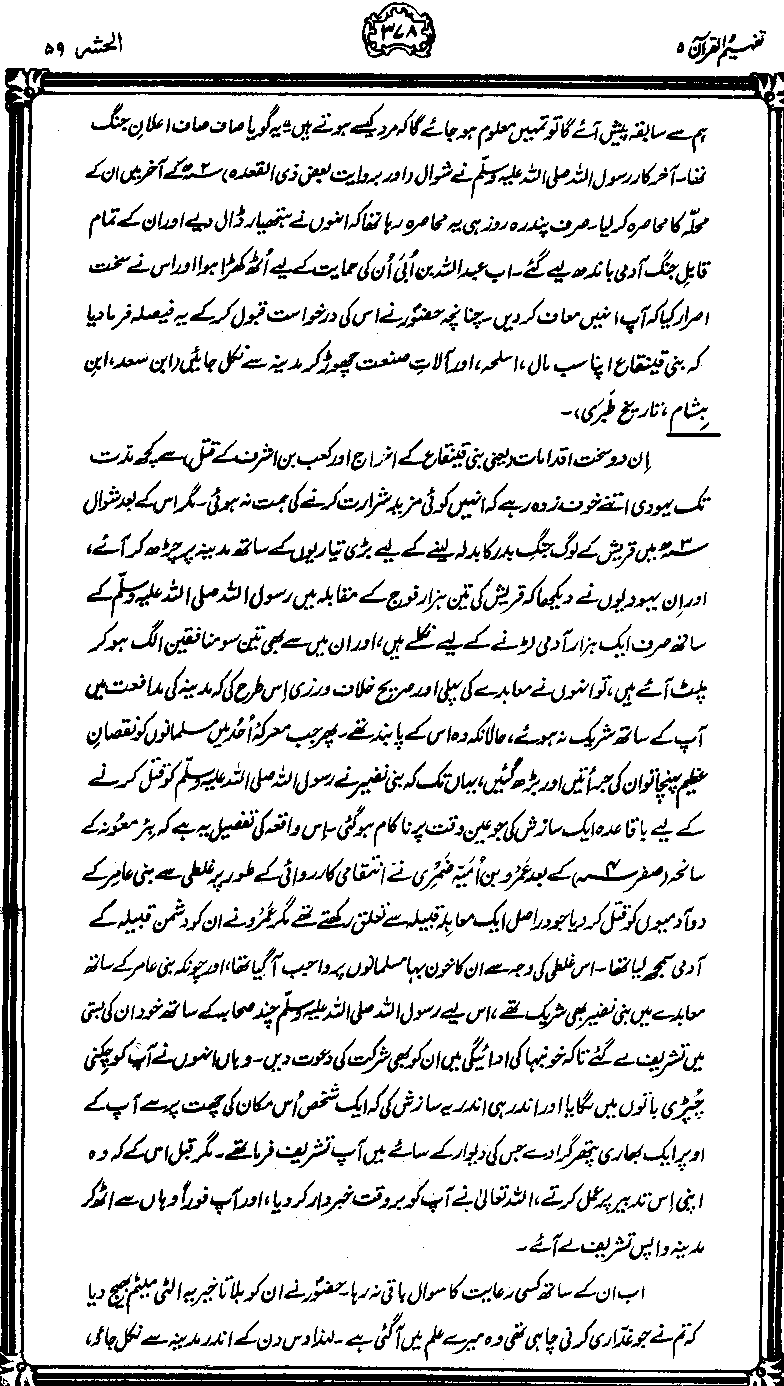 تفہیم القرآن ۵
۳۷۸
الحشر ۵۹
ہم سے سابقہ پیش آئے گا تو تمہیں معلوم ہو جائے گا کہ مرد کیسے ہوتے ہیں" یہ گویا صاف صاف اعلان جنگ
تھا۔ آخر کار رسول اللہ صلی اللہ علیہ وسلم نے شوال (اور بروایت بعض ذی القعدہ) ۲ھ کے آخر میں ان کے
محلہ کا محاصرہ کر لیا۔ صرف پندرہ روز ہی یہ محاصرہ رہا تھا کہ انہوں نے ہتھیار ڈال دیے اور ان کے تمام
قابلِ جنگ آدمی باندھ لیے گئے۔ اب عبداللہ بن اُبَیّ اُن کی حمایت کے لیے اُٹھ کھڑا ہوا اور اس نے سخت
اصرار کیا کہ آپ انہیں معاف کر دیں۔ چنانچہ حضورؐ نے اس کی درخواست قبول کر کے یہ فیصلہ فرما دیا
کہ بنی قینقاع اپنا سب مال، اسلحہ، اور آلاتِ صنعت چھوڑ کر مدینہ سے نکل جائیں (ابن سعد، ابنِ
ہشام، تاریخ طَبَری)۔
اِن دو سخت اقدامات (یعنی بنی قینقاع کے اخراج اور کعب بن اشرف کے قتل) سے کچھ مدت
تک یہودی اتنے خوف زدہ رہے کہ انہیں کوئی مزید شرارت کرنے کی ہمت نہ ہوئی۔ مگر اس کے بعد شوال
۳ھ میں قریش کے لوگ جنگِ بدر کا بدلہ لینے کے لیے بڑی تیاریوں کے ساتھ مدینہ پر چڑھ کر آئے،
اور اِن یہودیوں نے دیکھا کہ قریش کی تین ہزار فوج کے مقابلہ میں رسول اللہ صلی اللہ علیہ وسلّم کے
ساتھ صرف ایک ہزار آدمی لڑنے کے لیے نکلے ہیں، اور ان میں سے بھی تین سو منافقین الگ ہو کر
پلٹ آئے ہیں، تو انہوں نے معاہدے کی پہلی اور صریح خلاف ورزی اِس طرح کی کہ مدینہ کی مدافعت میں
آپ کے ساتھ شریک نہ ہوئے، حالانکہ وہ اس کے پابند تھے۔ پھر جب معرکۂ اُحُد میں مسلمانوں کو نقصانِ
عظیم پہنچا تو ان کی جرأتیں اور بڑھ گئیں، یہاں تک کہ بنی نضیر نے رسول اللہ صلی اللہ علیہ وسلّم کو قتل کرنے
کے لیے باقاعدہ ایک سازش کی جو عین وقت پر ناکام ہو گئی۔ اِس واقعہ کی تفصیل یہ ہے کہ بئر معونہ کے
سانحہ (صفر ۴ھ) کے بعد عَمْرو بن اُمَیَّہ ضَمْری نے انتقامی کارروائی کے طور پر غلطی سے بنی عامر کے
دو آدمیوں کو قتل کر دیا جو دراصل ایک معاہد قبیلہ سے تعلق رکھتے تھے مگر عَمْرو نے ان کو دشمن قبیلہ کے
آدمی سمجھ لیا تھا۔ اس غلطی کی وجہ سے ان کا خون بہا مسلمانوں پر واجب آ گیا تھا، اور چونکہ بنی عامر کے ساتھ
معاہدے میں بنی نضیر بھی شریک تھے، اس لیے رسول اللہ صلی اللہ علیہ وسلّم چند صحابہ کے ساتھ خود ان کی بستی
میں تشریف لے گئے تاکہ خونبہا کی ادائیگی میں ان کو بھی شرکت کی دعوت دیں۔ وہاں انہوں نے آپ کو چکنی
چپڑی باتوں میں لگایا اور اندر ہی اندر یہ سازش کی کہ ایک شخص اُس مکان کی چھت پر سے آپ کے
اوپر ایک بھاری پتھر گرا دے جس کی دیوار کے سائے میں آپ تشریف فرما تھے۔ مگر قبل اس کے کہ وہ
اپنی اِس تدبیر پر عمل کرتے، اللہ تعالیٰ نے آپ کو بر وقت خبردار کر دیا، اور آپ فوراً وہاں سے اٹھ کر
مدینہ واپس تشریف لے آئے۔
اب ان کے ساتھ کسی رعایت کا سوال باقی نہ رہا۔ حضورؐ نے ان کو بلا تاخیر یہ الٹی میٹم بھیج دیا
کہ تم نے جو غدّاری کرنی چاہی تھی وہ میرے علم میں آ گئی ہے۔ لہٰذا دس دن کے اندر مدینہ سے نکل جاؤ،